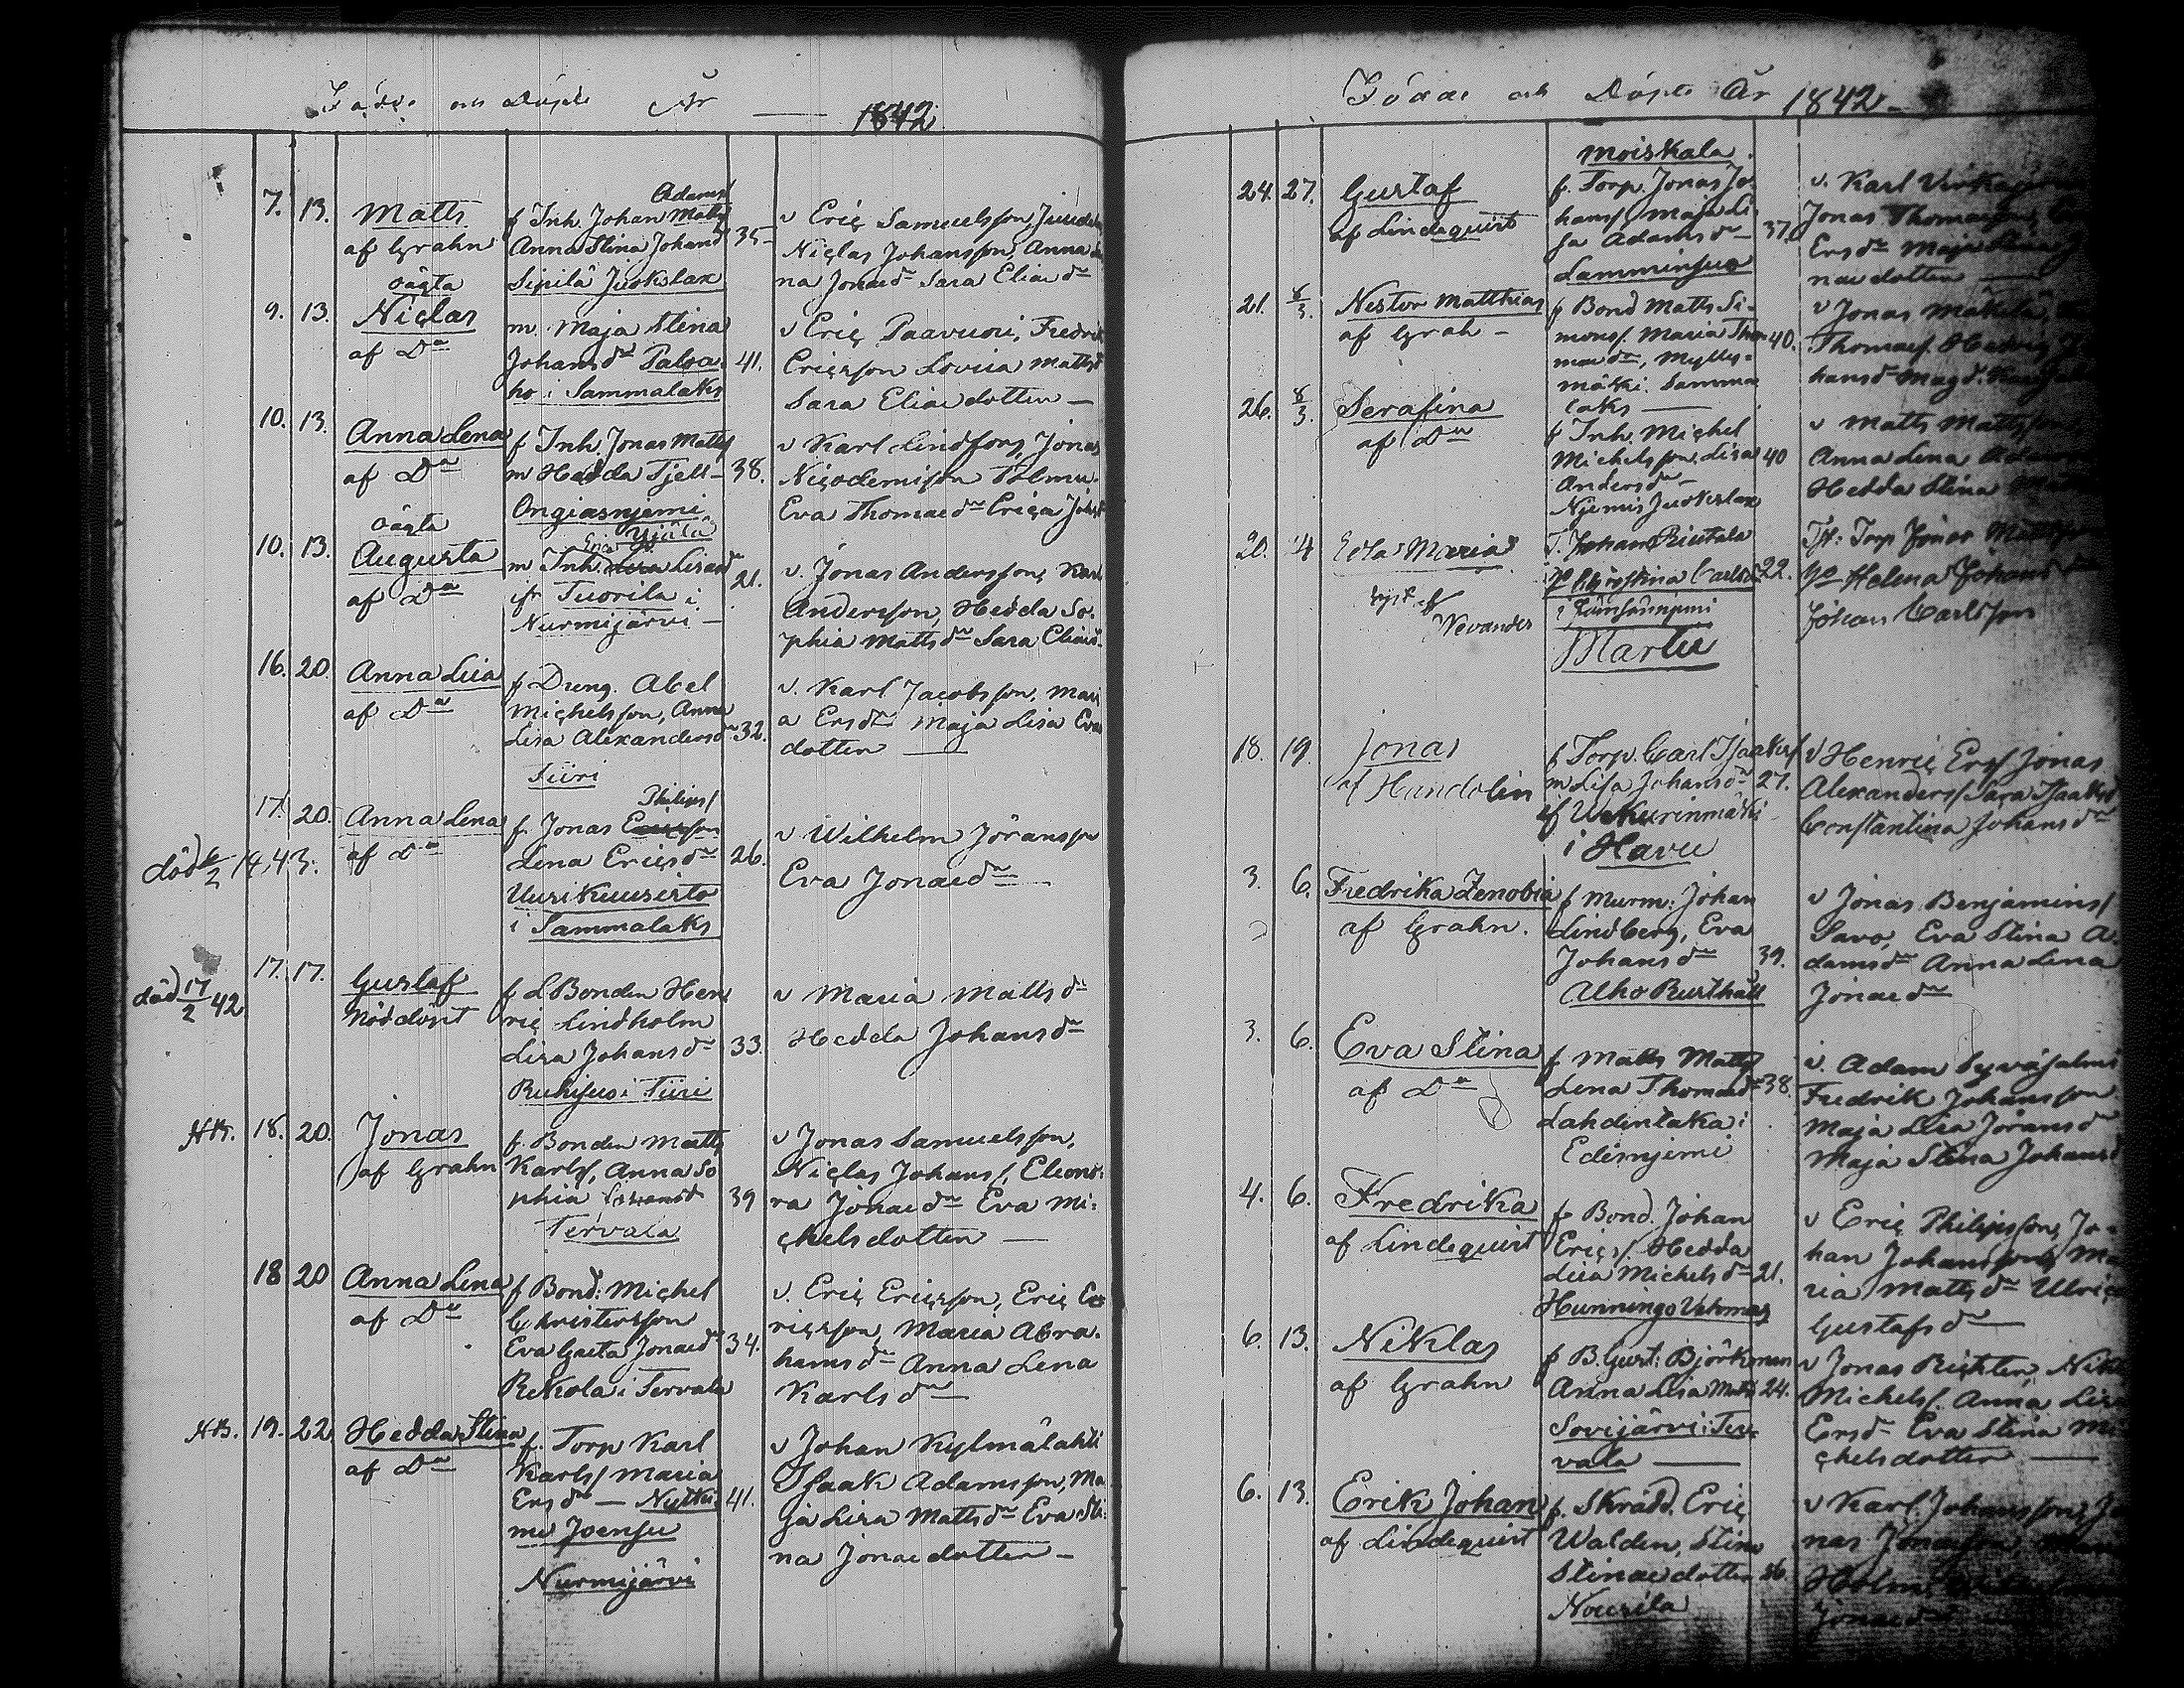 Födde och Döpte År — 1842
7. 13. Matts
af Grahn
f Inh. Johan Adams/ Matts/
Anna Stina Johansd 35
Sipilä Juokslax
v Eric Samuelsson,
Niclas Johansson, Anna
na Jonaedr Sara Eliaedr
oägta
9. 13. Niclas
af Do
m. Maja Stina
Johansdr Paloa- 41.
ho i Sammalaks
v Eric Paavuori, Fredrik
Ericsson Lovisa Mattsd
Sara Eliaedotter —
10. 13. Anna Lena
af Do
f Inh. Jonas Matts/
m Hedda Tjell- 38.
Ongiasnjemi
v Karl Lindfors, Jonas
Nicodemisson Tolmu.
Eva Thomaedr Erica Johsd
oägta
10. 13. Augusta
af Do
Yijälä
m Inh. Lisa 21.
ifr Tuorila i
Nurmijärvi —
v. Jonas Andersson, Karl
Andersson, Hedda So-
phia Mattsdr Sara Eliaed.
16. 20. Anna Lisa
af Do
f Dreng. Abel
Michelsson, Anna
Lisa Alexandersdr 32.
Tiiri
v. Karl Jacobsson, Mari
a Ersdr Maja Lisa Evae
dotter —
död 14, 43.
17. 20. Anna Lena
af Do
f. Jonas Ericsson Philips/
Lena Ericsdr 26.
Uusikuusisto
i Sammalaks
v Wilhelm Jöransson
Eva Jonaedr —
död 17/2 42
17. 17. Gustaf
Nöddöpt
f L Bonden Hen
ric Lindholm
Lisa Johansdr 33.
Ruhisuo i Tiiri
v Maria Mattsdr
Hedda Johansdr
HB. 18. 20. Jonas
af Grahn
f. Bonden Matts
Karls/, Anna So
phia 39
Tervala
v Jonas Samuelsson,
Niclas Johans/, Eleono-
ra Jonaedr Eva Mi-
chelsdotter —
18 20 Anna Lena
af Do
f Bond: Michel
Christersson
Eva Greta Jonaedr 34.
Rekola i Tervala
v. Eric Ericsson, Eric E
ricsson, Maria Abra-
hamsdr Anna Lena
Karlsdr
HB. 19. 22 Hedda Stina
af Do
f. Torp Karl
Karls/ Maria
Ersdr — 41.
Joensu
Nurmijärvi
v Johan Kylmälahti
Isaak Adamsson, Ma
ja Lisa Mattsdr Eva Sti-
na Jonaedotter —
Födde och Döpte År 1842 —
Moiskala
24. 27. Gustaf
af Lindequist
f. Torp. Jonas Jo-
hans/ Maja Li-
sa Adamsdr — 37.
Lamminsuo
v. Karl
Jonas Thomasson,
Ersdr Maja Stina
naedotter —
21. 8/3. Nestor Matthias
af Grah —
f Bond Matts Si-
mons/. Maria Tho- 40.
maedr, Mylly-
mäki Samma
laks —
v Jonas Mäkelä,
Thomaes. Hedvig
hansdr Magd.
26. 8/3. Serafina
af Do
f Inh. Michel
Michelsson, Lisa 40
Andersdr —
Njemis Juokslax
v Matts Matts
Anna Lena Adam
Hedda Stina
20. 4 Edla Maria
Nevander
T. Johan Rintala
Christina Carlsd 22.
Martu
Tst: Torp Jonas
Helena Johansdr
Johan Carlsson
18. 19. Jonas
af Handolin
f Torp. Carl Isaaks/
m Lisa Johansdr 27.
i Havu
v Henric Ers/ Jonas
Alexanders/ Sara Isaaksd
Constantina Johansdr
3. 6. Fredrika Zenobia
af Grahn.
f Murm: Johan
Lindberg, Eva
Johansdr 39.
Alho Rusthåll
v Jonas Benjamins/
Savo, Eva Stina A-
damsdr Anna Lena
Jonaedr
3. 6. Eva Stina
af Do
f Matts Matts/
Lena Thomaed 38.
Lahdentaka i
Edisnjemi
v. Adam Syväsalmi
Fredrik Johansson
Maja Lisa Jöransdr
Maja Stina Johansd
4. 6. Fredrika
af Lindequist
f Bond. Johan
Erics/. Hedda
Lisa Michelsdr 21.
Hunningo Uskomas
v Eric Philipsson, Jo-
han Johansson, Ma
ria Mattsdr Ulrica
Gustafsdr —
6. 13. Niklas
af Grahn
f B. Gust: Björkman
Anna Lisa Matts 24.
Sovijärvi i Ter-
vala —
v Jonas Richter, Nik
Michels/. Anna Lisa
Ersdr Eva Stina Mi
chelsdotter —
6. 13. Erik Johan
af Lindequist
f. Skrädd. Eric
Walden, Stina
Stinaedotter 36.
Nousila
v Karl Johansson, Jo
nas Jonasson,
Holm
Jonaedr